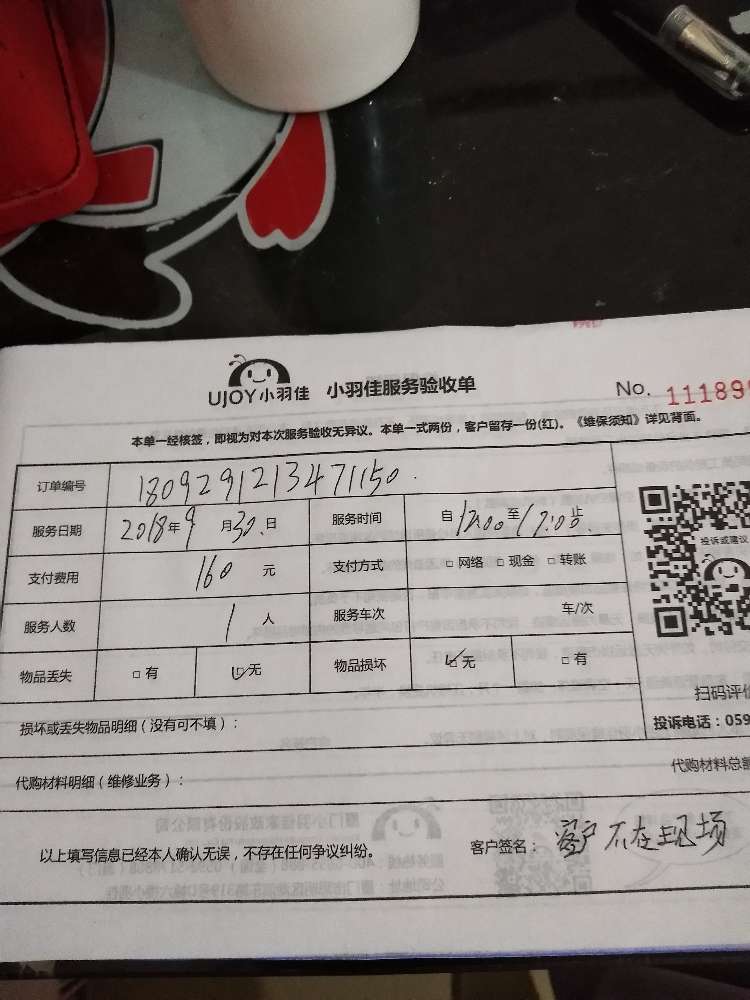 UJOY小羽佳 小羽佳服务验收单 No. 11189
本单一经核签，即视为对本次服务验收无异议。本单一式两份，客户留存一份(红)。《维保须知》详见背面。
订单编号 1809291213471150
服务日期 2018年9月30日 服务时间 自12:00至17:00止
投诉或建议
支付费用 160元 支付方式 □ 网络 □ 现金 □ 转账
服务人数 1人 服务车次 车/次
物品丢失 □ 有 ☑无 物品损坏 ☑无 □ 有
扫码评价
损坏或丢失物品明细（没有可不填）： 投诉电话：059
代购材料明细（维修业务）： 代购材料总额
以上填写信息已经本人确认无误，不存在任何争议纠纷。 客户签名：客户不在现场